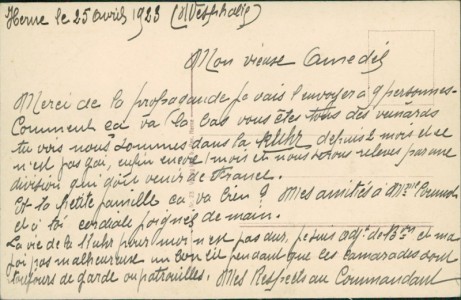 Herne le 25 avril 1923 (Westphalie)
Mon vieux Amedée
Merci de la propagande je vais l'envoyer à 9 personnes.
Comment ça va là bas vous êtes tous des veinards
tu vois nous sommes dans la Ruhr depuis 2 mois et ce
n'est pas gai, enfin encore 1 mois et nous serons relevés par une
division qui doit venir de France.
Et la petite famille ça va bien ? Mes amitiés à Mme
et à toi cordiale poignée de main.
La vie de la Ruhr pour moi n'est pas dur, je suis adjt de Bon et ma
foi pas malheureux un bon lit pendant que les camarades sont
toujours de garde ou patrouilles. Mes Respects au Commandant